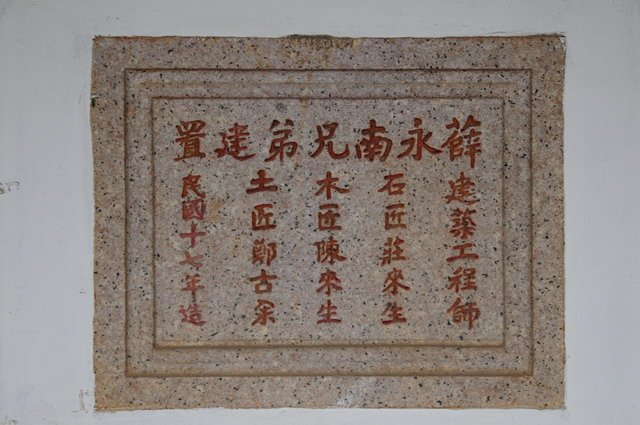 薛永南兄弟建置
建築工程師
石匠莊來生
木匠陳來生
土匠鄭古呆
民國十七年造